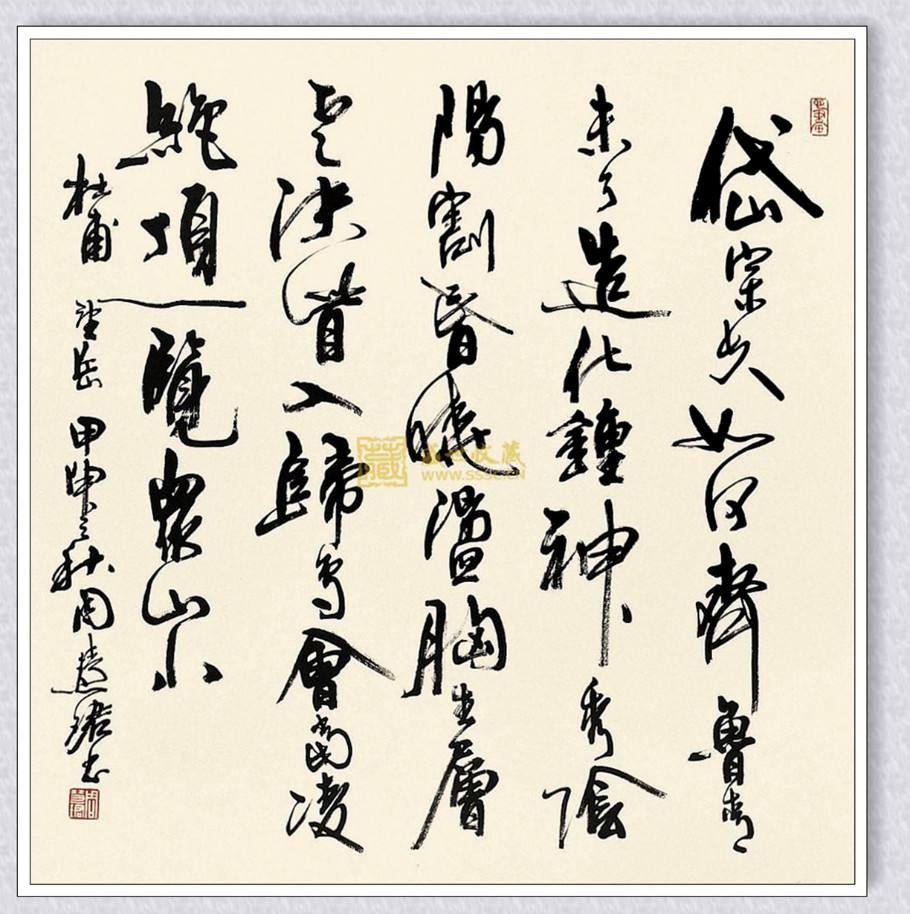 岱宗夫如何齊魯青
未了造化鍾神秀陰
陽割昏曉盪胸生層
雲決眥入歸鳥會當凌
絕頂一覽眾山小
杜甫 望岳 甲申之秋周慧珺書
藏
盛世收藏
www.sssc.cn